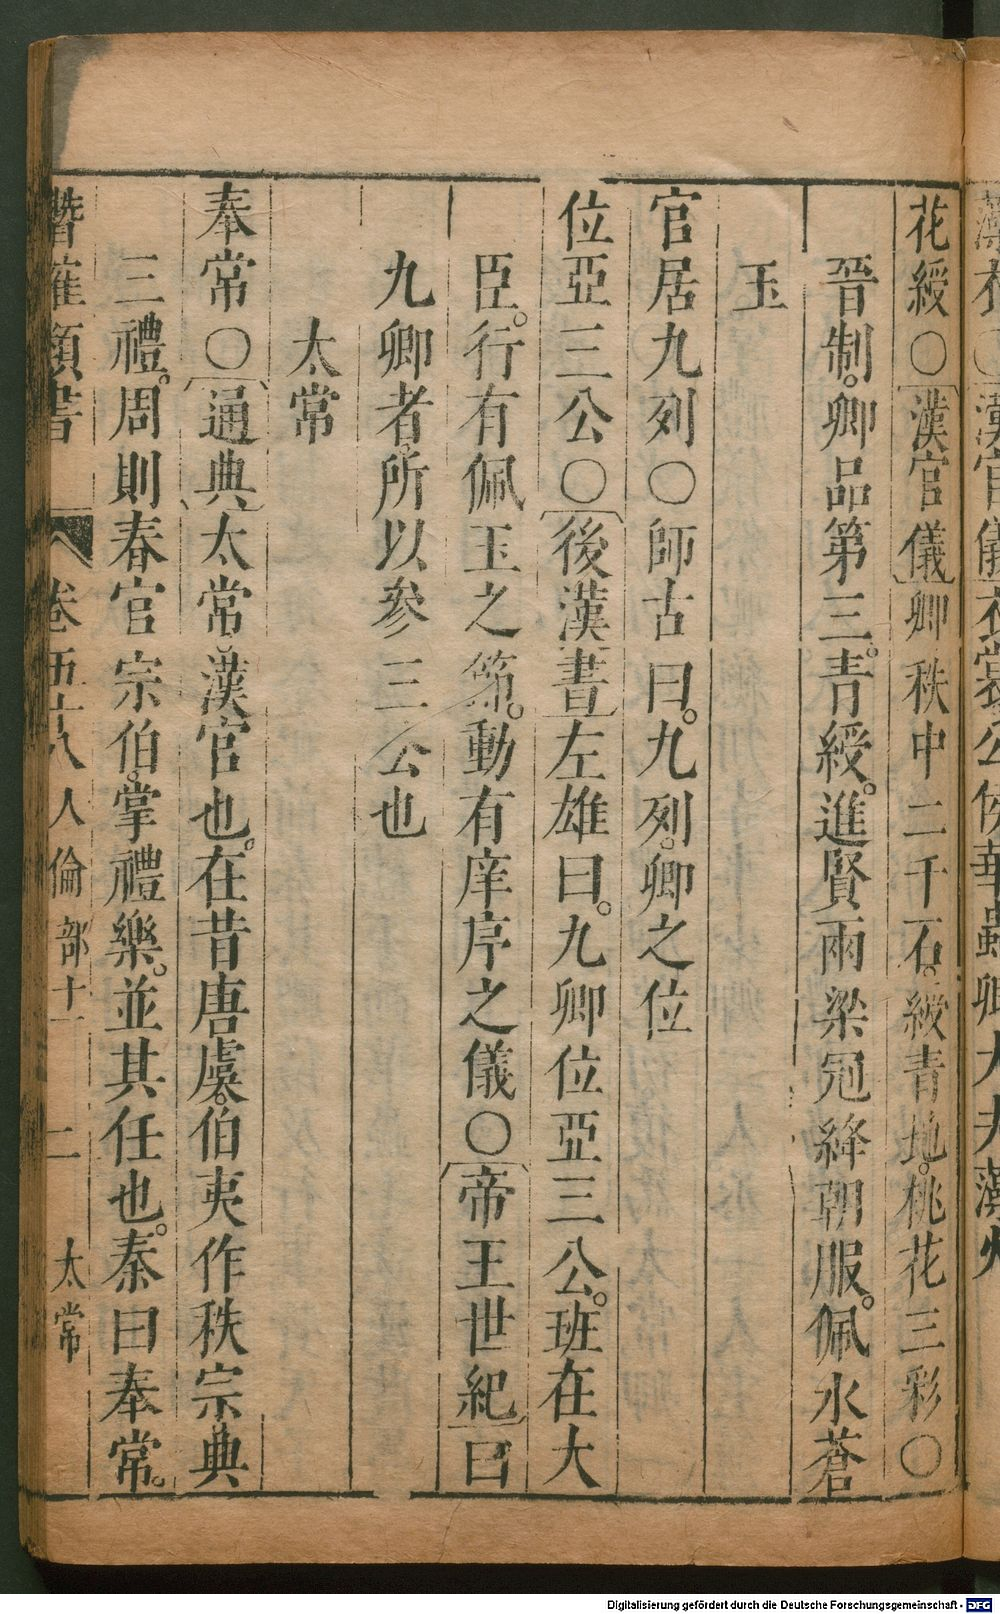 花綬○漢官儀卿秩中二千石。綬青地。桃花三彩○
晉制。卿品第三。青綬。進賢兩梁冠絳朝服。佩水蒼
玉
官居九列○師古曰。九列。卿之位
位亞三公○後漢書左雄曰。九卿位亞三公。班在大
臣。行有佩玉之第。動有庠序之儀○帝王世紀曰
九卿者。所以參三公也
太常
奉常○通典太常。漢官也。在昔唐虞。伯夷作秩宗典
三禮。周則春官宗伯。掌禮樂。並其任也。秦曰奉常。
潛確類書 卷五十八 人倫部十一 二 太常
Digitalisierung gefördert durch die Deutsche Forschungsgemeinschaft - DFG